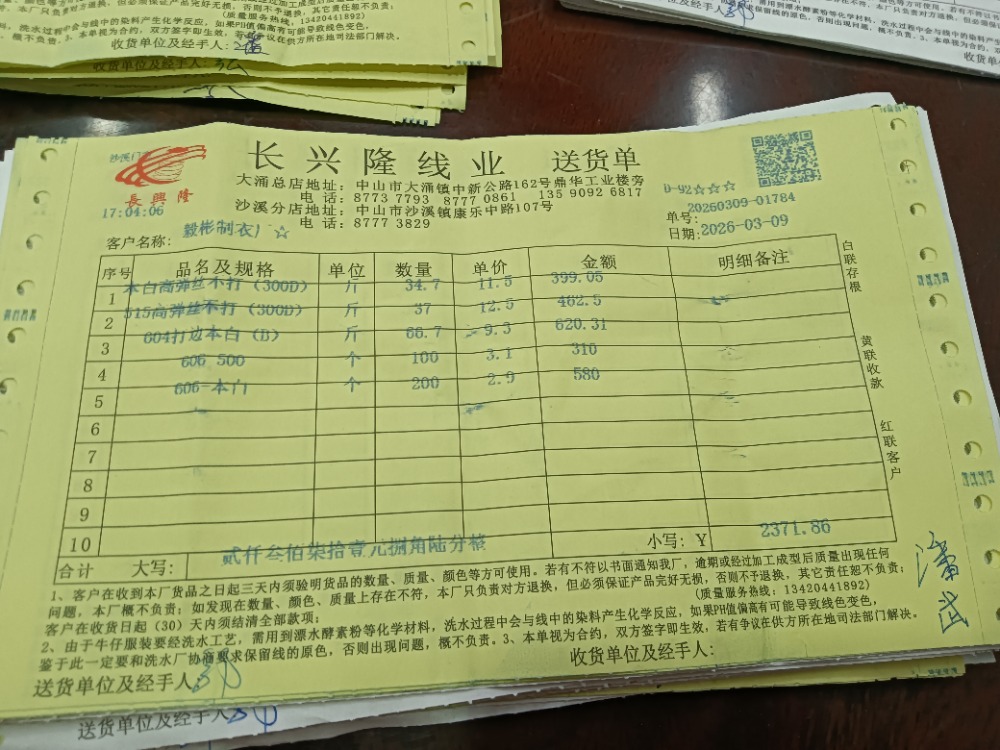 (质量服务热线：13420441892)
收货单位及经手人：
概不负责。3、本单视为合约，双方签字即生效，若有争议在供方所在地司法部门解决。
收货单位及经手人：
长兴隆线业 送货单
長興隆
大涌总店地址：中山市大涌镇中新公路162号鼎华工业楼旁
电话：8773 7793 8777 0861 135 9092 6817
沙溪分店地址：中山市沙溪镇康乐中路107号
电话：8777 3829
17:04:06
D-92☆☆☆
单号：20260309-01784
日期：2026-03-09
客户名称：毅彬制衣厂☆
序号 品名及规格 单位 数量 单价 金额 明细备注
1 本白高弹丝不打（300D） 斤 34.7 11.5 399.05
2 515高弹丝不打（300D） 斤 37 12.5 462.5
3 604打边本白（B） 斤 66.7 9.3 620.31
4 606 500 个 100 3.1 310
5 606-本门 个 200 2.9 580
6
7
8
9
10
合计 大写：贰仟叁佰柒拾壹元捌角陆分整 小写：Y 2371.86
白联存根
黄联收款
红联客户
1、客户在收到本厂货品之日起三天内须验明货品的数量、质量、颜色等方可使用。若有不符以书面通知我厂，逾期或经过加工成型后质量出现任何
问题，本厂概不负责；如发现在数量、颜色、质量上存在不符，本厂只负责对方退换，但必须保证产品完好无损，否则不予退换，其它责任恕不负责；
客户在收货日起（30）天内须结清全部款项； (质量服务热线：13420441892)
2、由于牛仔服装要经洗水工艺，需用到漂水酵素粉等化学材料，洗水过程中会与线中的染料产生化学反应，如果PH值偏高有可能导致线色变色，
鉴于此一定要和洗水厂协商要求保留线的原色，否则出现问题，概不负责。3、本单视为合约，双方签字即生效，若有争议在供方所在地司法部门解决。
送货单位及经手人： 收货单位及经手人：
送货单位及经手人